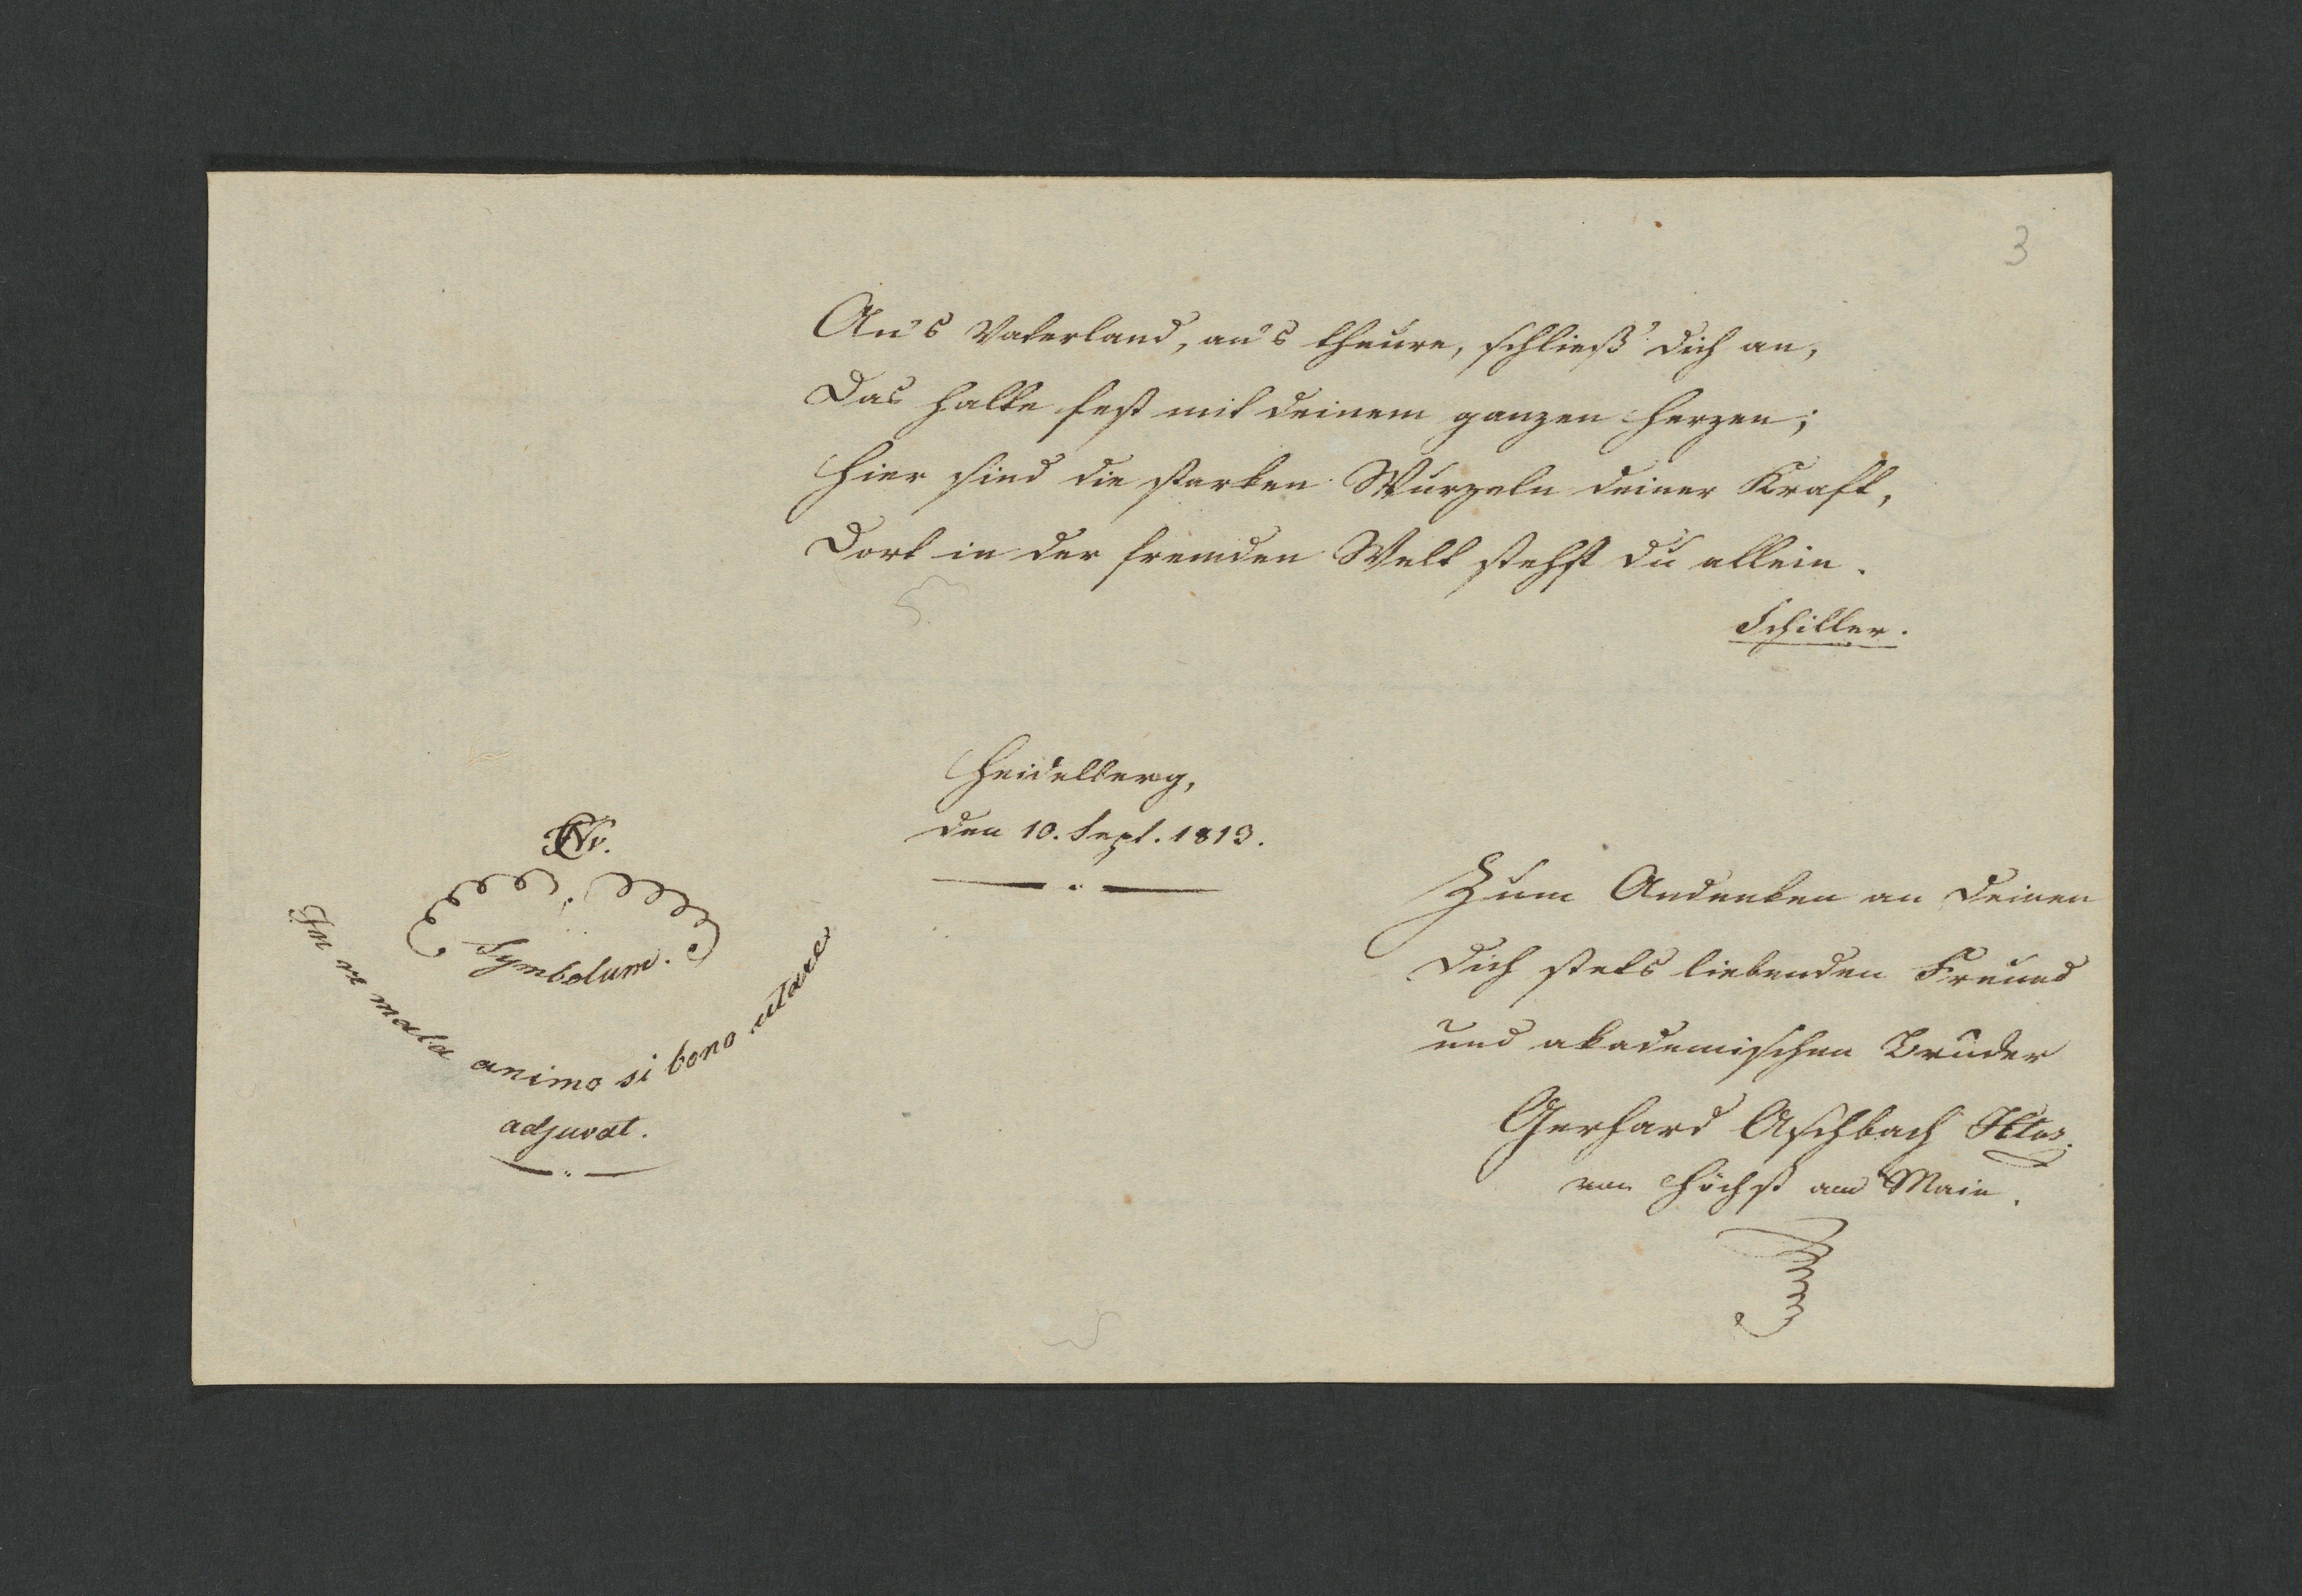 3
An's Vaterland, an's theure, schließ' dich an,
Das halte fest mit deinem ganzen Herzen;
Hier sind die starken Wurzeln deiner Kraft,
Dort in der fremden Welt stehst du allein.
Schiller.
Heidelberg,
den 10. Sept. 1813.
Symbolum.
In re mala animo si bono utare
adjuvat.
Zum Andenken an Deinen
Dich stets liebenden Freund
und akademischen Bruder
Gerhard Aschbach
von Höchst am Main.